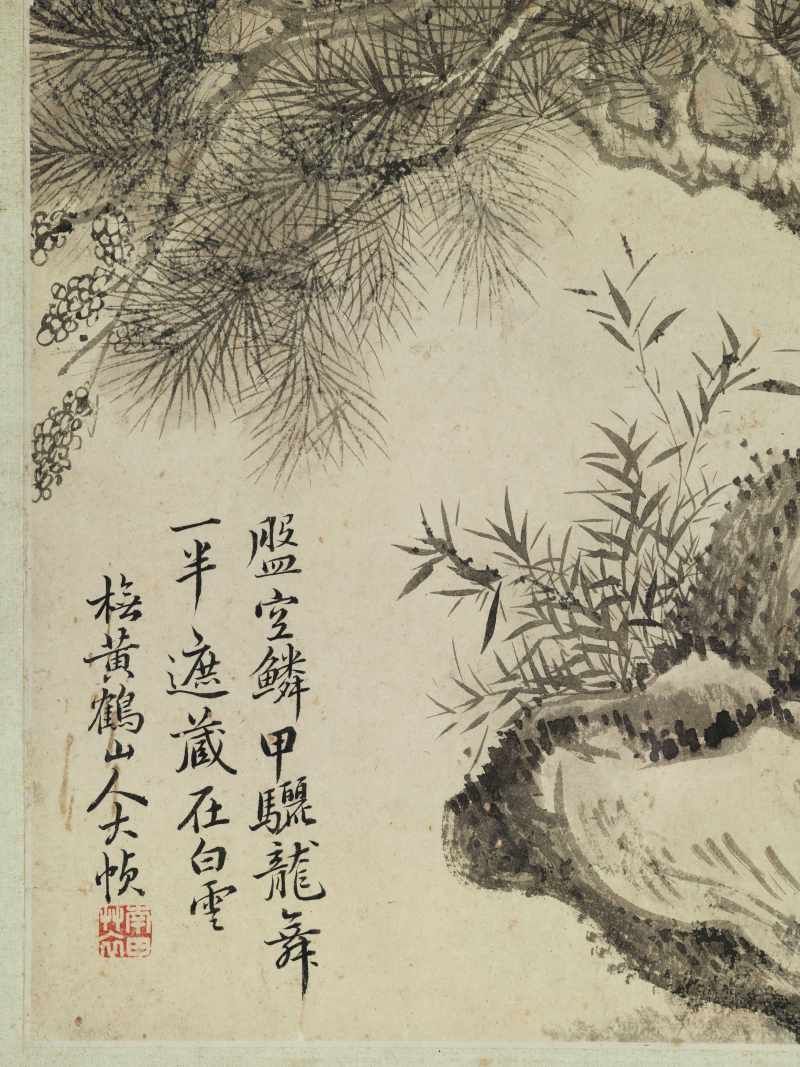 盤空鱗甲驪龍舞
一半遮藏在白雲
橅黃鶴山人大幀
南田草衣